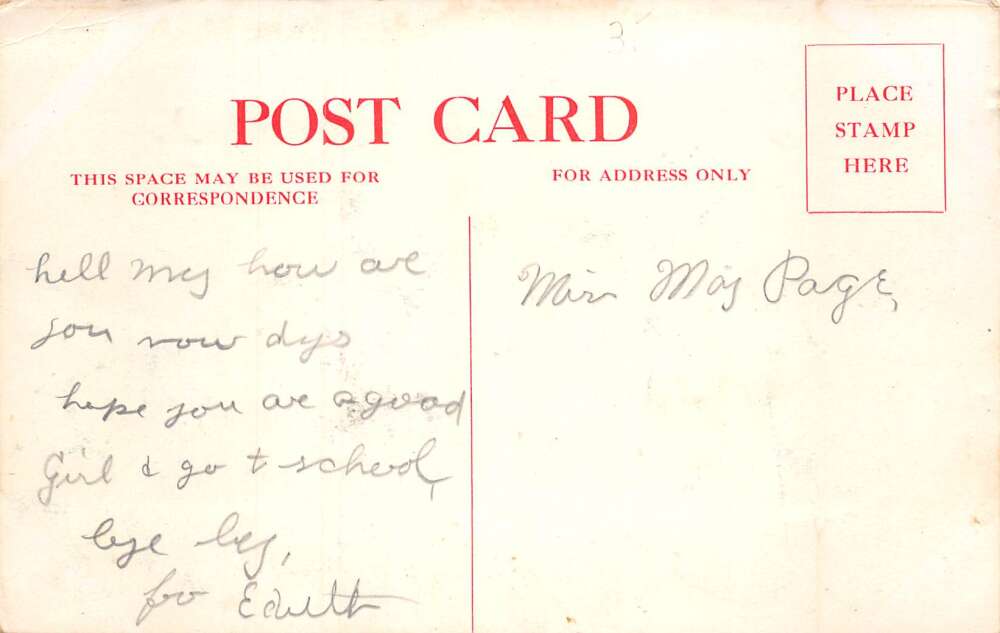 3.
POST CARD
PLACE
STAMP
HERE
THIS SPACE MAY BE USED FOR
CORRESPONDENCE
FOR ADDRESS ONLY
hell May how are
you now dys
hope you are a good
Girl & go t school,
bye by,
fro Edith
Miss May Page,